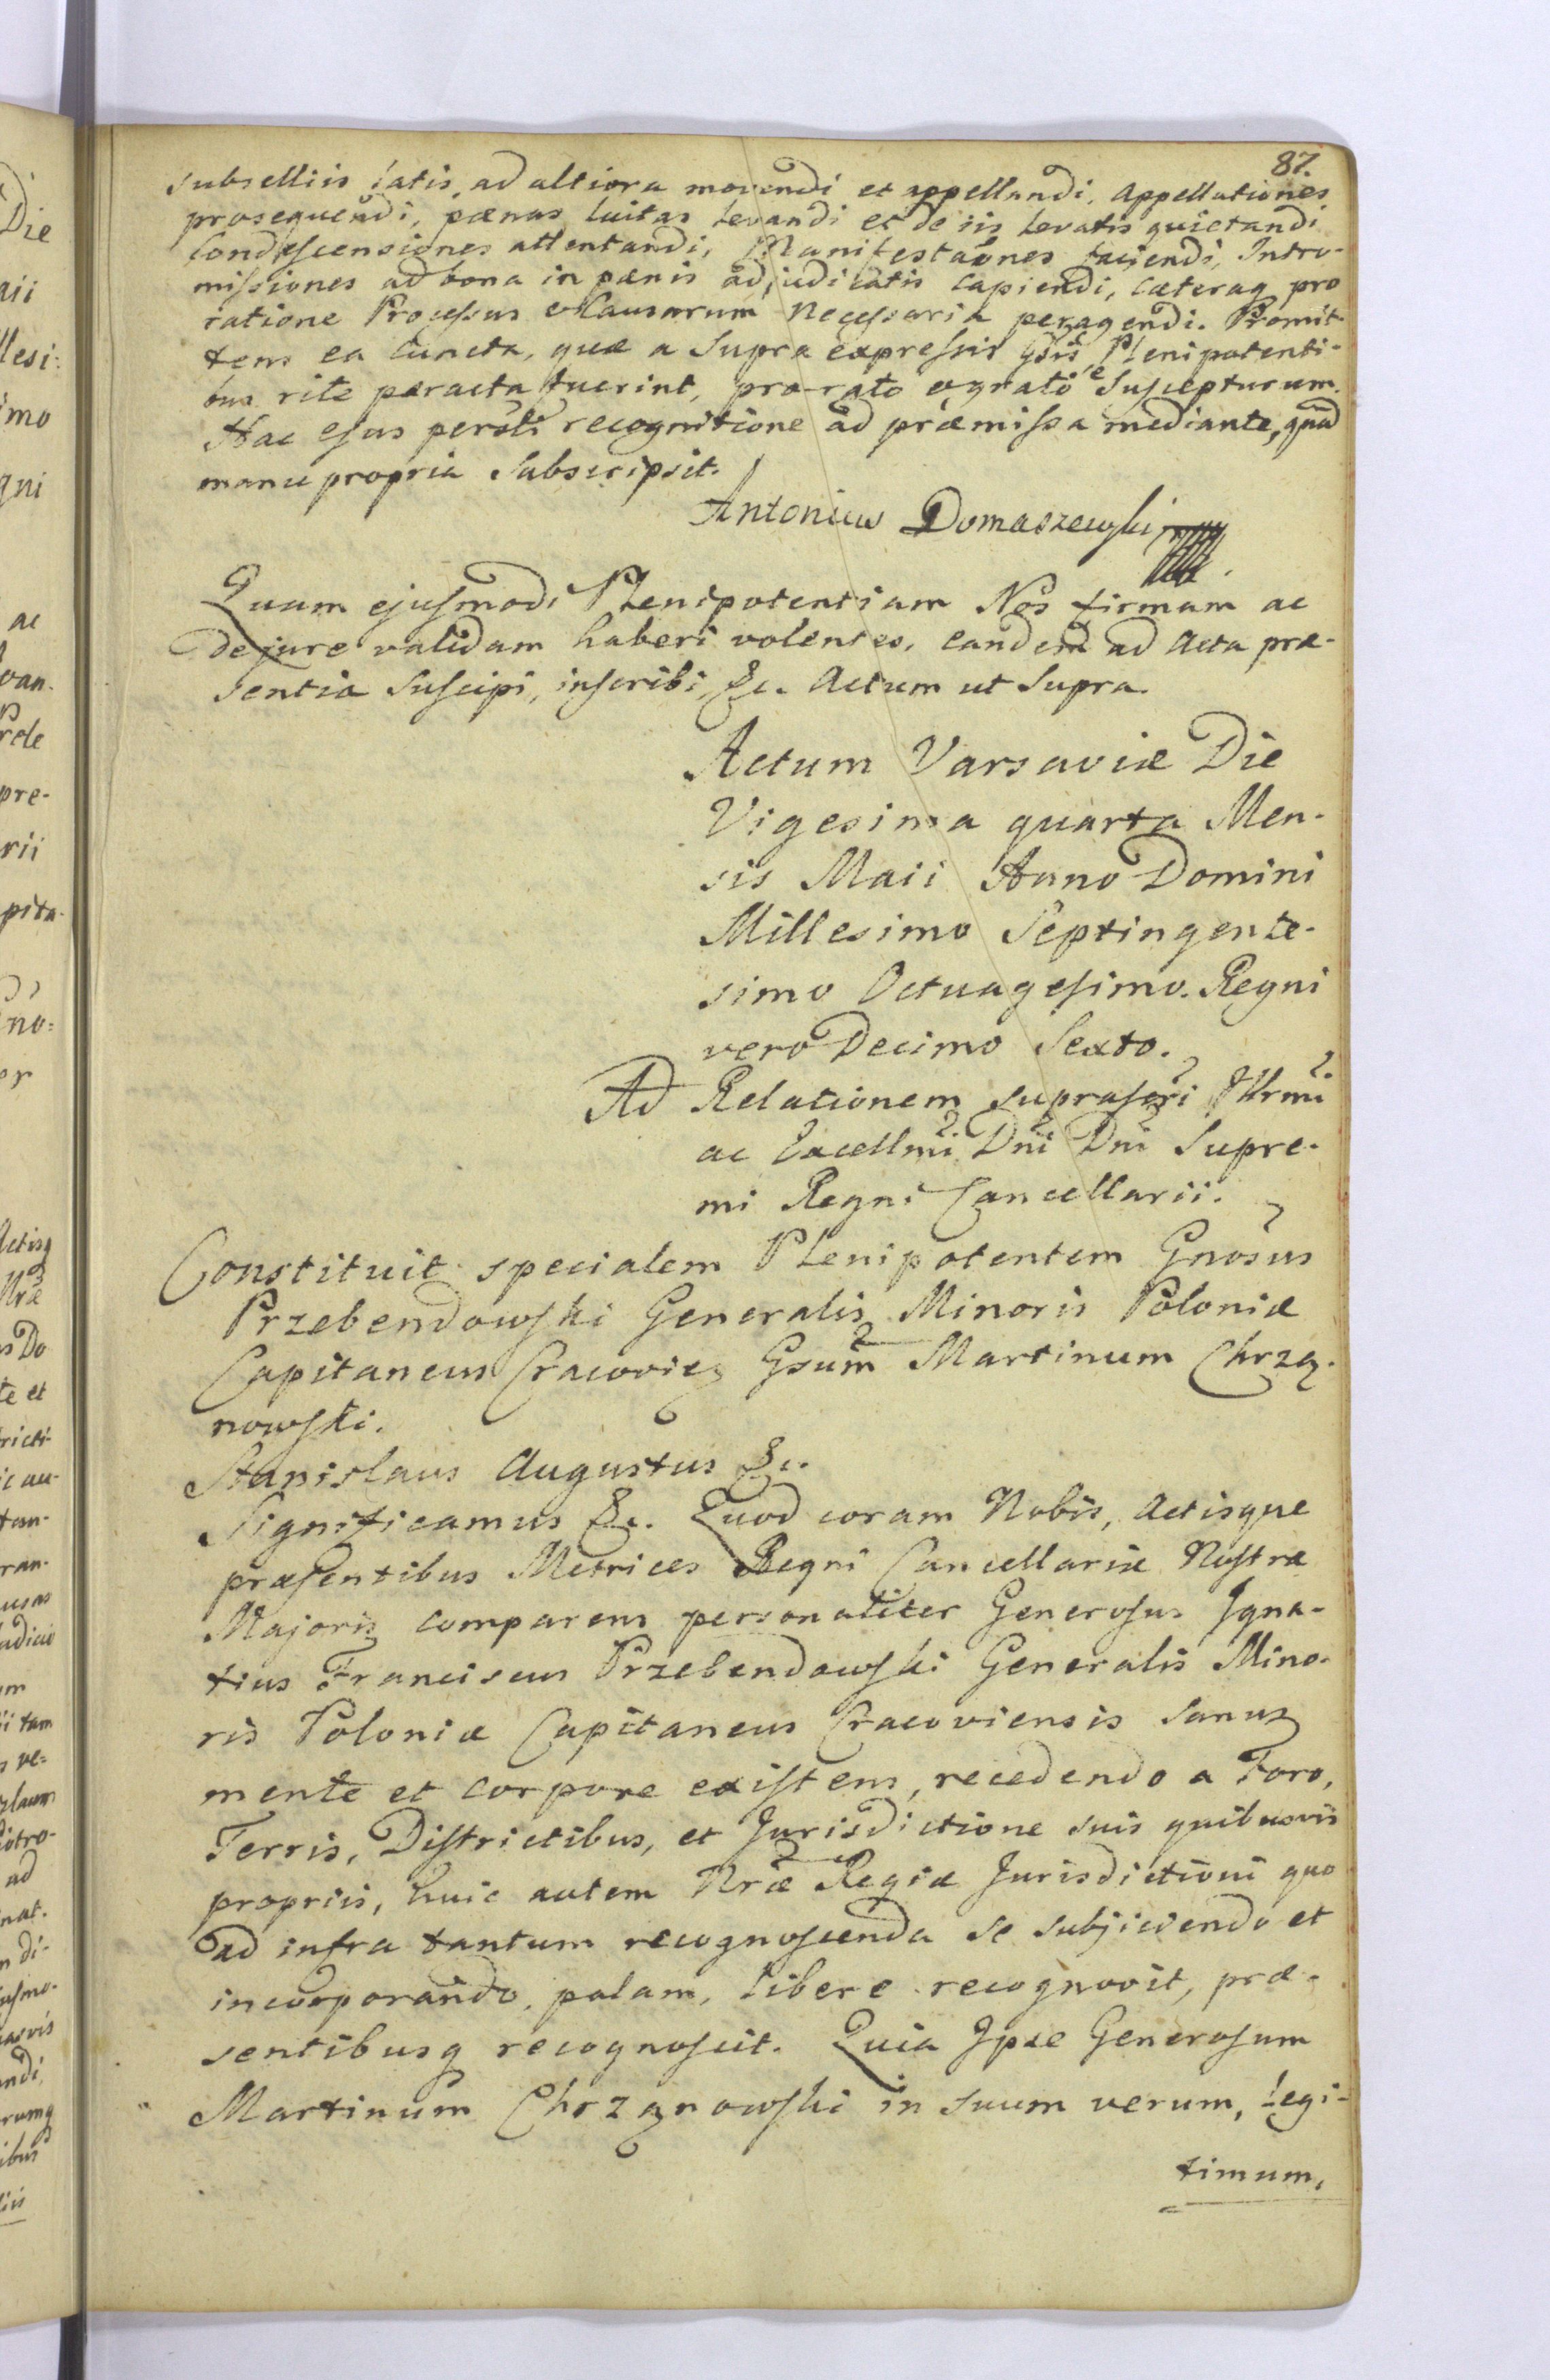 87.
subselliis latis, ad altiora movendi et appellandi, Appellationes
prosequendi, pænas luitas levandi et de iis levatis quietandi
Condescensiones attentandi, Manifestaõnes faciendi, Intro-
missiones ad bona in pænis adjudicatis capiendi, cæteraq pro
ratione Processus et Causarum Necessaria peragendi. Promit-
tens ea cuncta, quæ a supra expressis Gsis Plenipotenti-
bus rite peracta fuerint, pro rato et grato suscepturum.
Hac ejus perõli recognitione ad præmissa mediante, quad
manu propria Subscripsit.
Antonius Domaszewski
Quam ejusmodi Plenipotentiam Nos firmam ac
de jure validam haberi volentes, eandem ad Acta præ-
sentia Suscipi, inscribi &c. Actum ut Supra.
Actum Varsaviæ Die
Vigesima quarta Men-
sis Maii Anno Domini
Millesimo Septingente-
simo Octuagesimo. Regni
vero Decimo Sexto.
Ad Relationem suprascri Illrmi
ac Excellmi Dni Dni Supre-
mi Regni Cancellarii.
Constituit specialem Plenipotentem Gnosus
Przebendowski Generalis Minoris Poloniæ
Capitaneus Cracovięs Gsum Martinum Chrzą-
nowski.
Stanislaus Augustus &c.
Significamus &c. Quod coram Nobis, Actisque
præsentibus Metrices Regni Cancellariæ Nostræ
Majoris comparens personaliter Generosus Igna-
tius Franciscus Przebendowski Generalis Mino-
ris Poloniæ Capitaneus Cracoviensis sanus
mente et corpore existens, recedendo a Foro,
Terris, Districtibus, et Jurisdictione suis quibusvis
propriis, huic autem Nræ Regiæ Jurisdictioni quo
ad infra tantum recognoscenda se subjiciendo et
incorporando, palam, libere recognovit, præ-
sentibusq recognoscit. Quia Ipse Generosum
Martinum Chrząnowski in suum verum, legi-
timum,